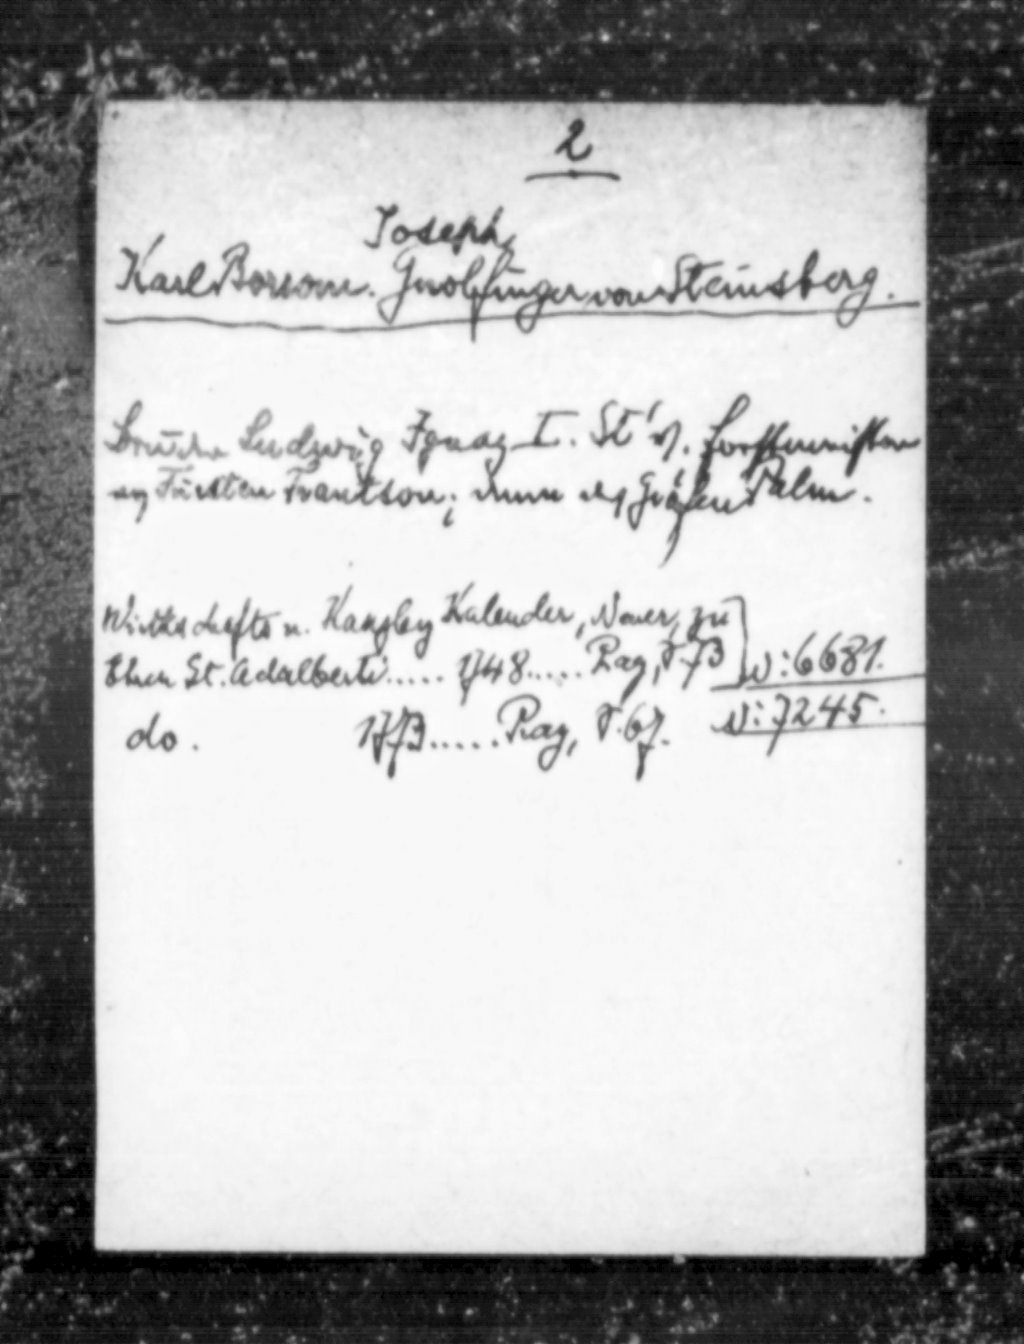 2
Joseph
Karl Borrom. Gnolfinger von Steinsberg.
Bruder Ludwig Ignaz I. St' Forstmeister
Fürsten Trautson; dann des Grafen Palm.
Wirthschafts u. Kanzley Kalender, Neuer, zu
Ehren St. Adalberti..... 1748..... Prag, S. 73 N: 6681.
do. 1773..... Prag, S. 67. N: 7245.